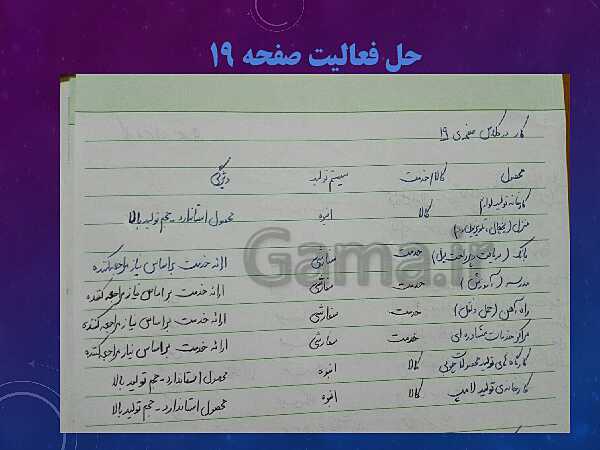 حل فعالیت صفحه ۱۹
کار در کلاس صفحه‌ی ۱۹
محصول کالا/خدمت سیستم تولید ویژگی
کارخانه تولید لوازم کالا انبوه محصول استاندارد - حجم تولید بالا
منزل (یخچال، تلویزیون و...)
بانک (دریافت و پرداخت پول) خدمت سفارشی ارائه خدمت بر اساس نیاز مراجعه کننده
مدرسه (آموزش) خدمت سفارشی ارائه خدمت بر اساس نیاز مراجعه کننده
راه آهن (حمل و نقل) خدمت سفارشی ارائه خدمت بر اساس نیاز مراجعه کننده
مراکز خدمات مشاوره ای خدمت سفارشی ارائه خدمت بر اساس نیاز مراجعه کننده
کارگاه های تولید محصولات چوبی کالا انبوه محصول استاندارد - حجم تولید بالا
کارخانه‌ی تولید لامپ کالا انبوه محصول استاندارد - حجم تولید بالا
Gama.ir